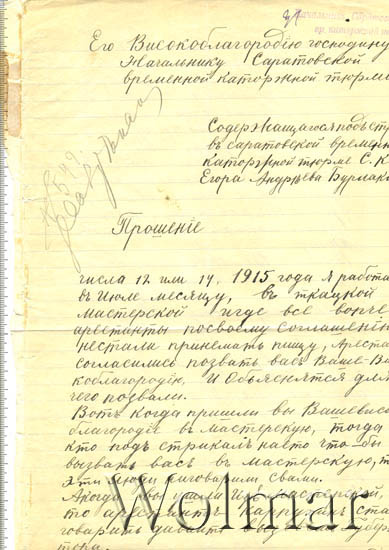 Его Високоблагородію господину
Начальнику Саратовской
временной каторжной тюрмы
Содержащагося подъ ст
въ саратовской времен
каторжной тюрме С. К.
Егора Андрѣева Бурмако
Прошеніе
числа 12 или 14. 1915 года я работа
въ Июле месяцу, въ ткацкой
мастерской игде все
арестанты посвоему соглашенію
нестали принемать пищу, Ареста
согласились позвать васъ Ваше-Ви
коблагородіе, и Объяснятся для
чего позвали.
Вотъ когда пришли вы Вашевысо
благородіе въ мастерскую, тогда
кто подъ стрикалъ насто что-бы
вызвать васъ въ мастерскую, т
эти люди говорили Свами.
Акогда вы ушли изъ мастерской,
то арестантъ Карпухинъ ста
говорить давайте вызовемъ губер
тора.
Wolmar